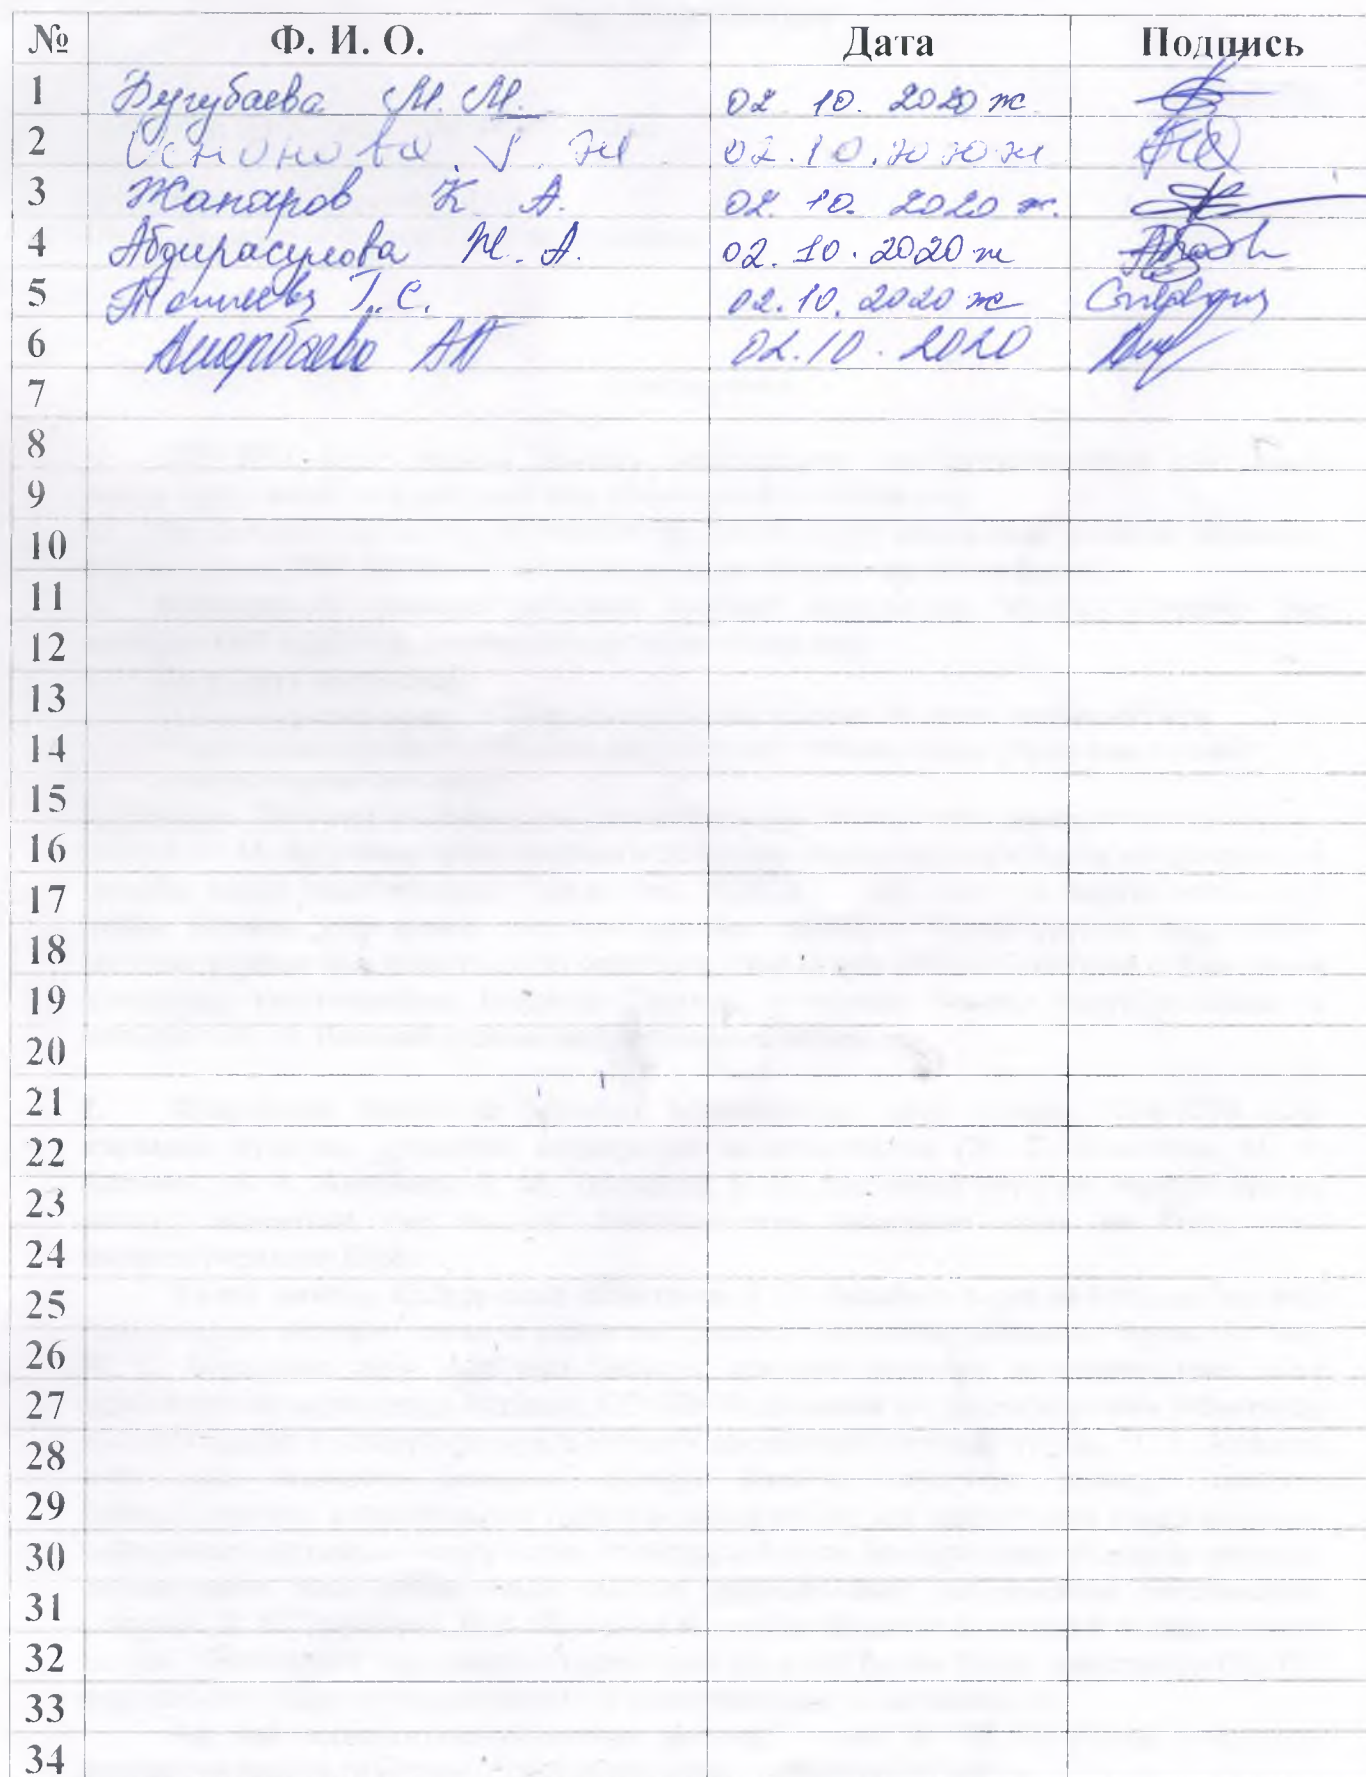 № Ф. И. О. Дата Подпись
1 М. М. 02. 10. 2020 ж
2 02.10.2020 ж
3 Жапаров К А. 02. 10. 2020 ж.
4 Абдирасулова Ж. А. 02. 10. 2020 ж
5 Г. С. 02. 10. 2020 ж
6 02.10.2020
7
8
9
10
11
12
13
14
15
16
17
18
19
20
21
22
23
24
25
26
27
28
29
30
31
32
33
34